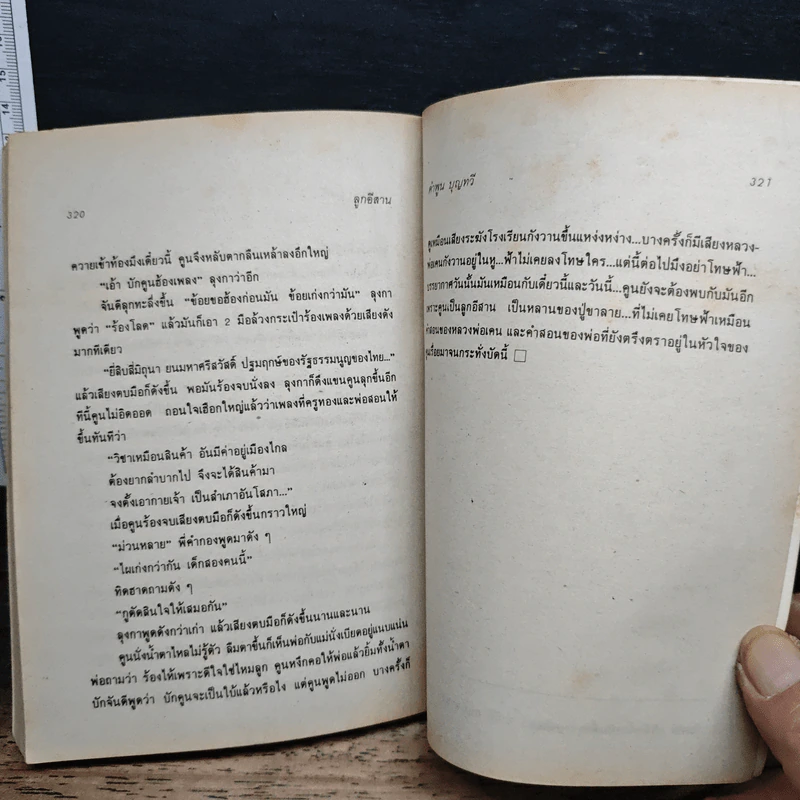 320
ลูกอีสาน
ควายเข้าท้องมึงเดี๋ยวนี้ คูนจึงหลับตากลืนเหล้าลงอีกใหญ่
“เอ้า บักคูนฮ้องเพลง” ลุงกาว่าอีก
จันดีลุกทะลึ่งขึ้น “ข้อยขอฮ้องก่อนมัน ข้อยเก่งกว่ามัน” ลุงกา
พูดว่า “ร้องโลด” แล้วมันก็เอา 2 มือล้วงกระเป๋าร้องเพลงด้วยเสียงดัง
มากทีเดียว
“ยี่สิบสี่มิถุนา ยนมหาศรีสวัสดิ์ ปฐมฤกษ์ของรัฐธรรมนูญของไทย...”
แล้วเสียงตบมือก็ดังขึ้น พอมันร้องจบนั่งลง ลุงกาก็ดึงแขนคูนลุกขึ้นอีก
ทีนี้คูนไม่อิดออด ถอนใจเฮือกใหญ่แล้วว่าเพลงที่ครูทองและพ่อสอนให้
ขึ้นทันทีว่า
“วิชาเหมือนสินค้า อันมีค่าอยู่เมืองไกล
ต้องยากลำบากไป จึงจะได้สินค้ามา
จงตั้งเอากายเจ้า เป็นสำเภาอันโสภา...”
เมื่อคูนร้องจบเสียงตบมือก็ดังขึ้นกราวใหญ่
“ม่วนหลาย” พี่คำกองพูดมาดัง ๆ
“ไผเก่งกว่ากัน เด็กสองคนนี้”
ทิดฮาดถามดัง ๆ
“กูตัดสินใจให้เสมอกัน”
ลุงกาพูดดังกว่าเก่า แล้วเสียงตบมือก็ดังขึ้นนานและนาน
คูนนั่งน้ำตาไหลไม่รู้ตัว ลืมตาขึ้นก็เห็นพ่อกับแม่นั่งเบียดอยู่แนบแน่น
พ่อถามว่า ร้องไห้เพราะดีใจใช่ไหมลูก คูนหงึกคอให้พ่อแล้วยิ้มทั้งน้ำตา
บักจันดีพูดว่า บักคูนจะเป็นใบ้แล้วหรือไง แต่คูนพูดไม่ออก บางครั้งก็
คำพูน บุญทวี
321
ดูเหมือนเสียงระฆังโรงเรียนกังวานขึ้นแหง่งหง่าง...บางครั้งก็มีเสียงหลวง-
พ่อเคนกังวานอยู่ในหู...ฟ้าไม่เคยลงโทษใคร...แต่นี้ต่อไปมึงอย่าโทษฟ้า...
บรรยากาศวันนั้นมันเหมือนกับเดี๋ยวนี้และวันนี้...คูนยังจะต้องพบกับมันอีก
เพราะคูนเป็นลูกอีสาน เป็นหลานของปู่ขาลาย...ที่ไม่เคยโทษฟ้าเหมือน
คำสอนของหลวงพ่อเคน และคำสอนของพ่อที่ยังตรึงตราอยู่ในหัวใจของ
คูนเรื่อยมาจนกระทั่งบัดนี้